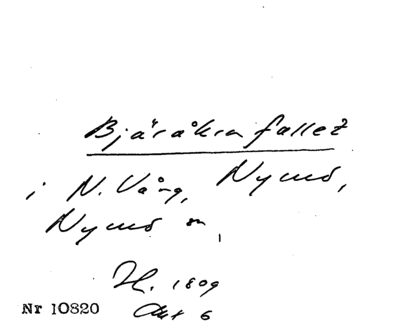 Bjäråkra fallet
i N. Vång, Nymö,
Nymö sn,
H. 1809
Akt 6
Nr 10820